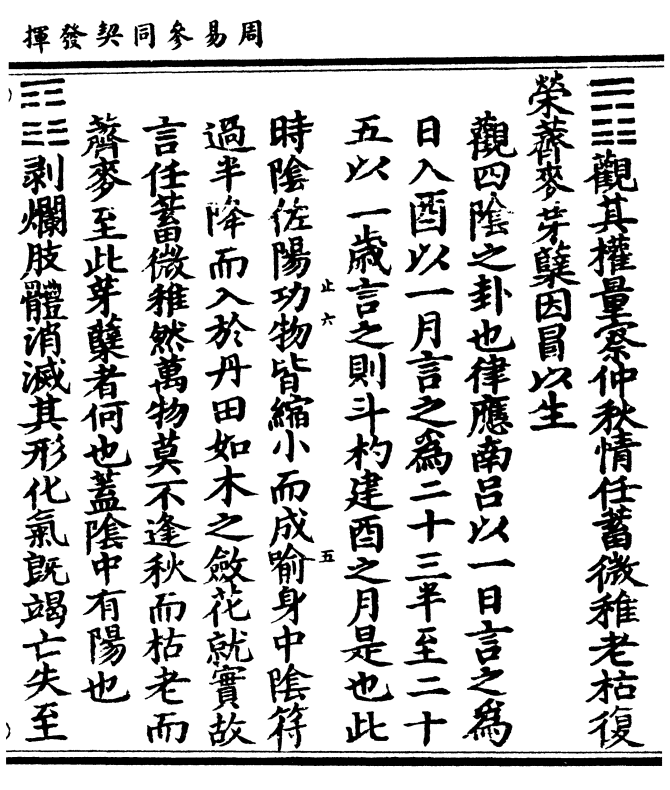 周易參同契發揮
䷓觀其權量察仲秋情任蓄微稚老枯復
榮薺麥芽櫱因冒以生
觀四陰之卦也律應南呂以一日言之爲
日入酉以一月言之爲二十三半至二十
五以一歲言之則斗杓建酉之月是也此
時陰佐陽功物皆縮小而成喻身中陰符
過半降而入於丹田如木之斂花就實故
言任蓄微稚然萬物莫不逢秋而枯老而
薺麥至此芽櫱者何也蓋陰中有陽也
䷖剥爛肢體消滅其形化氣既竭亡失至
止六
五